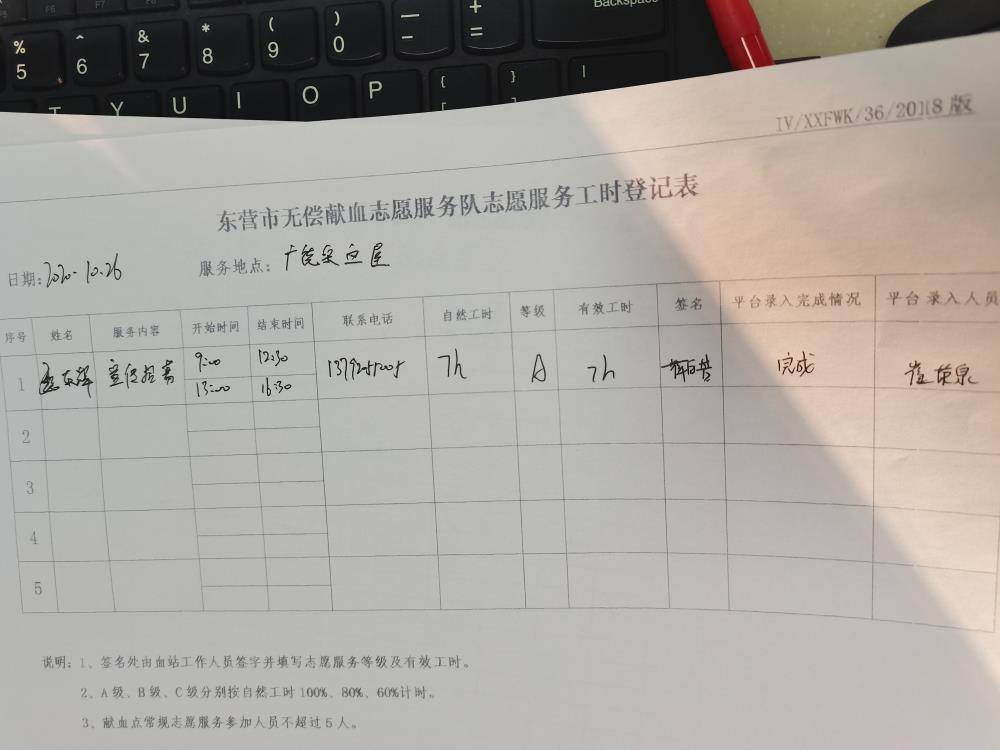 Backspace
% 5 ^ 6 & 7 * 8 ( 9 ) 0 — - + =
Y U I O P { [ }
IV/XXFWK/36/2018版
东营市无偿献血志愿服务队志愿服务工时登记表
日期:2020-10.26 服务地点:广饶采血屋
序号 姓名 服务内容 开始时间 结束时间 联系电话 自然工时 等级 有效工时 签名 平台录入完成情况 平台录入人员
1 宣传招募 9:00 12:30 7h A 7h 完成
13:00 16:30
2
3
4
5
说明:1、签名处由血站工作人员签字并填写志愿服务等级及有效工时。
2、A级、B级、C级分别按自然工时100%、80%、60%计时。
3、献血点常规志愿服务参加人员不超过5人。